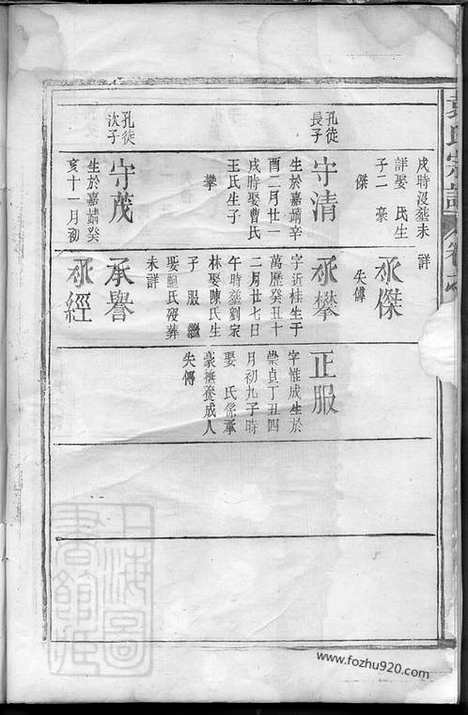 戌時没塟未詳
詳娶 氏生
子二 豪
傑
孔徒
長子
守清
生於嘉靖辛
酉二月廿一
戌時娶曹氏
王氏生子
攀
孔徒
次子
守茂
生於嘉靖癸
亥十一月初
承傑
失傳
承攀
字近桂生于
萬歷癸丑十
二月廿七日
午時塟劉家
林娶陳氏生
子 服 繼
娶 氏殁葬
未詳
承譽
承經
正服
字惟成生於
崇貞丁丑四
月初九子時
娶 氏係承
豪撫養成人
失傳
上海圖
書館藏
www.fozhu920.com